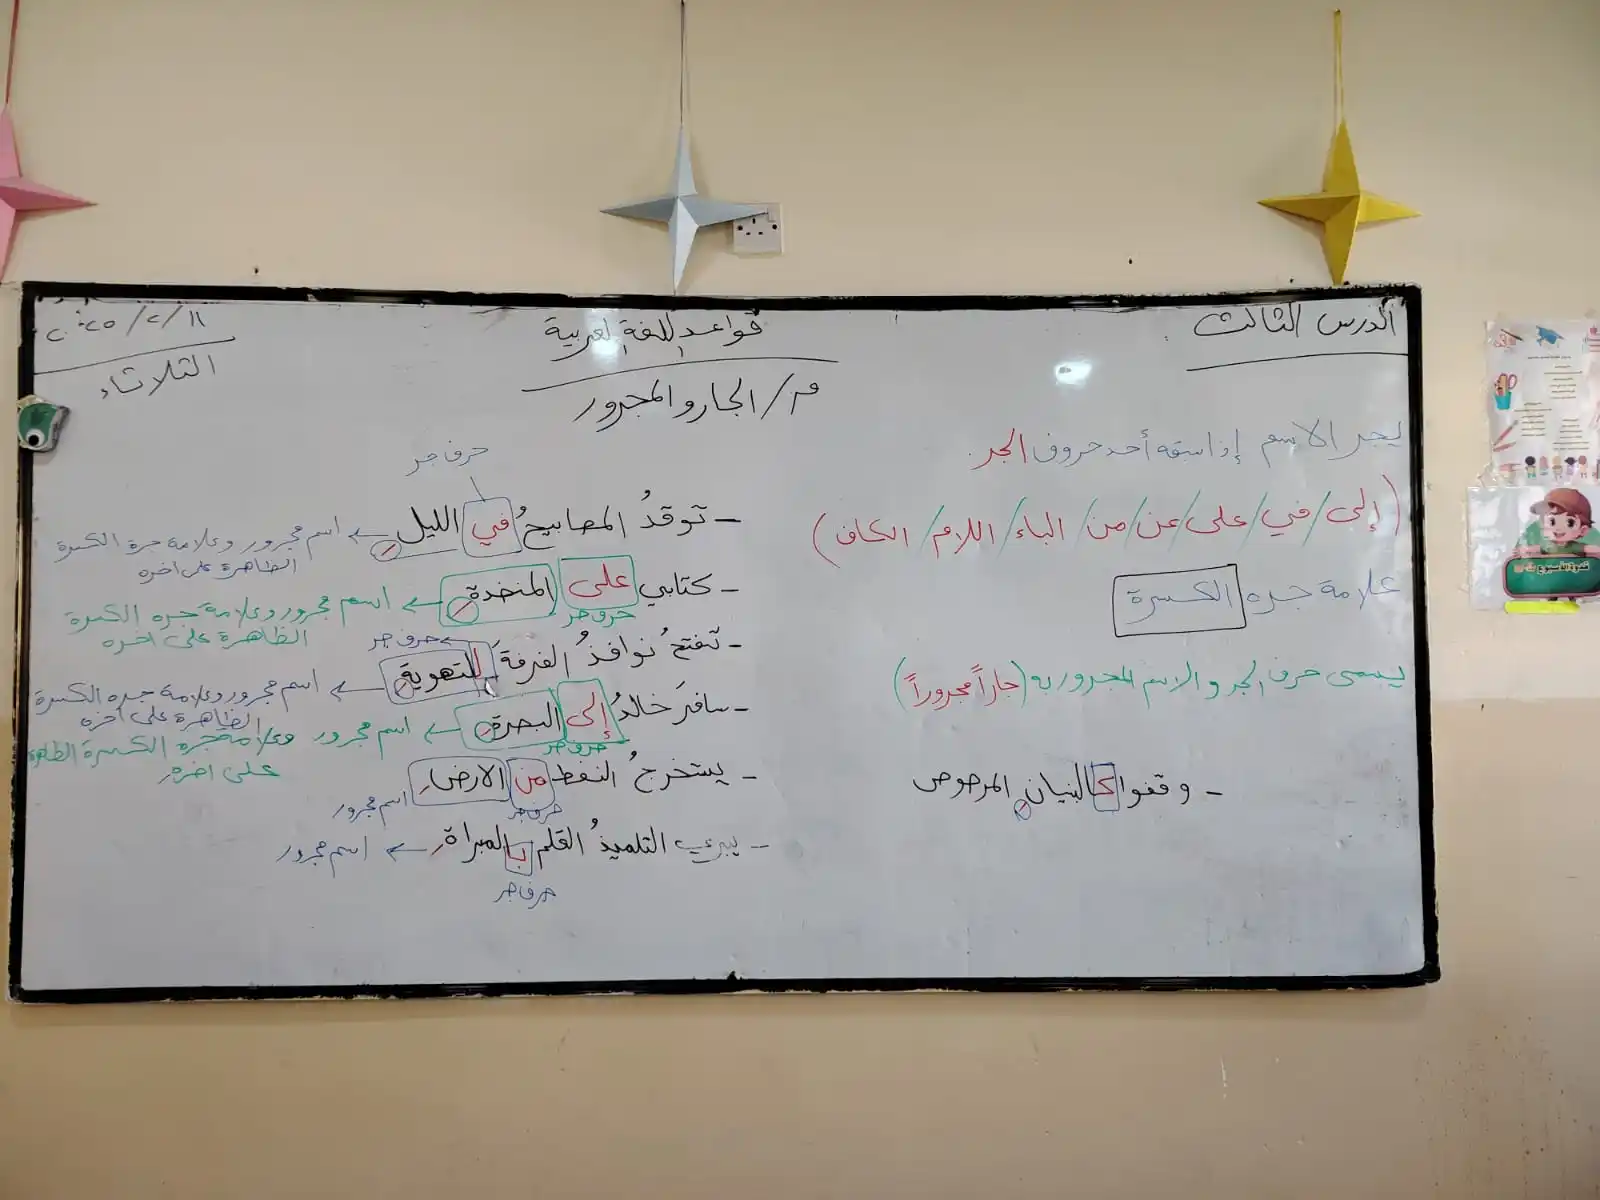 الدرس الثالث
قواعد اللغة العربية
٢٠٢٥/٢/١١
الثلاثاء
م/ الجار والمجرور
يجر الاسم إذا سبقه أحد حروف الجر.
(إلى/في/على/عن/من/الباء/اللام/الكاف)
علامة جره الكسرة
يسمى حرف الجر والاسم المجرور به (جاراً مجروراً)
- وقفوا كالبنيانِ المرصوص
حرف جر
- توقدُ المصابيحُ في الليلِ ← اسم مجرور وعلامة جرة الكسرة
الظاهرة على اخره
- كتابي على المنضدةِ ← اسم مجرور وعلامة جره الكسرة
حرف جر
الظاهرة على اخره
حرف جر
- تفتحُ نوافذُ الغرفةَ للتهويةِ ← اسم مجرور وعلامة جره الكسرة
الظاهرة على اخره
- سافرَ خالدُ إلى البصرةِ ← اسم مجرور وعلامة جره الكسرة الظاهرة
حرف جر
على اخره
- يستخرجُ النفط من الارضِ اسم مجرور
حرف جر
- يبري التلميذُ القلم بالمبراةِ ← اسم مجرور
حرف جر
قدوة الأسبوع